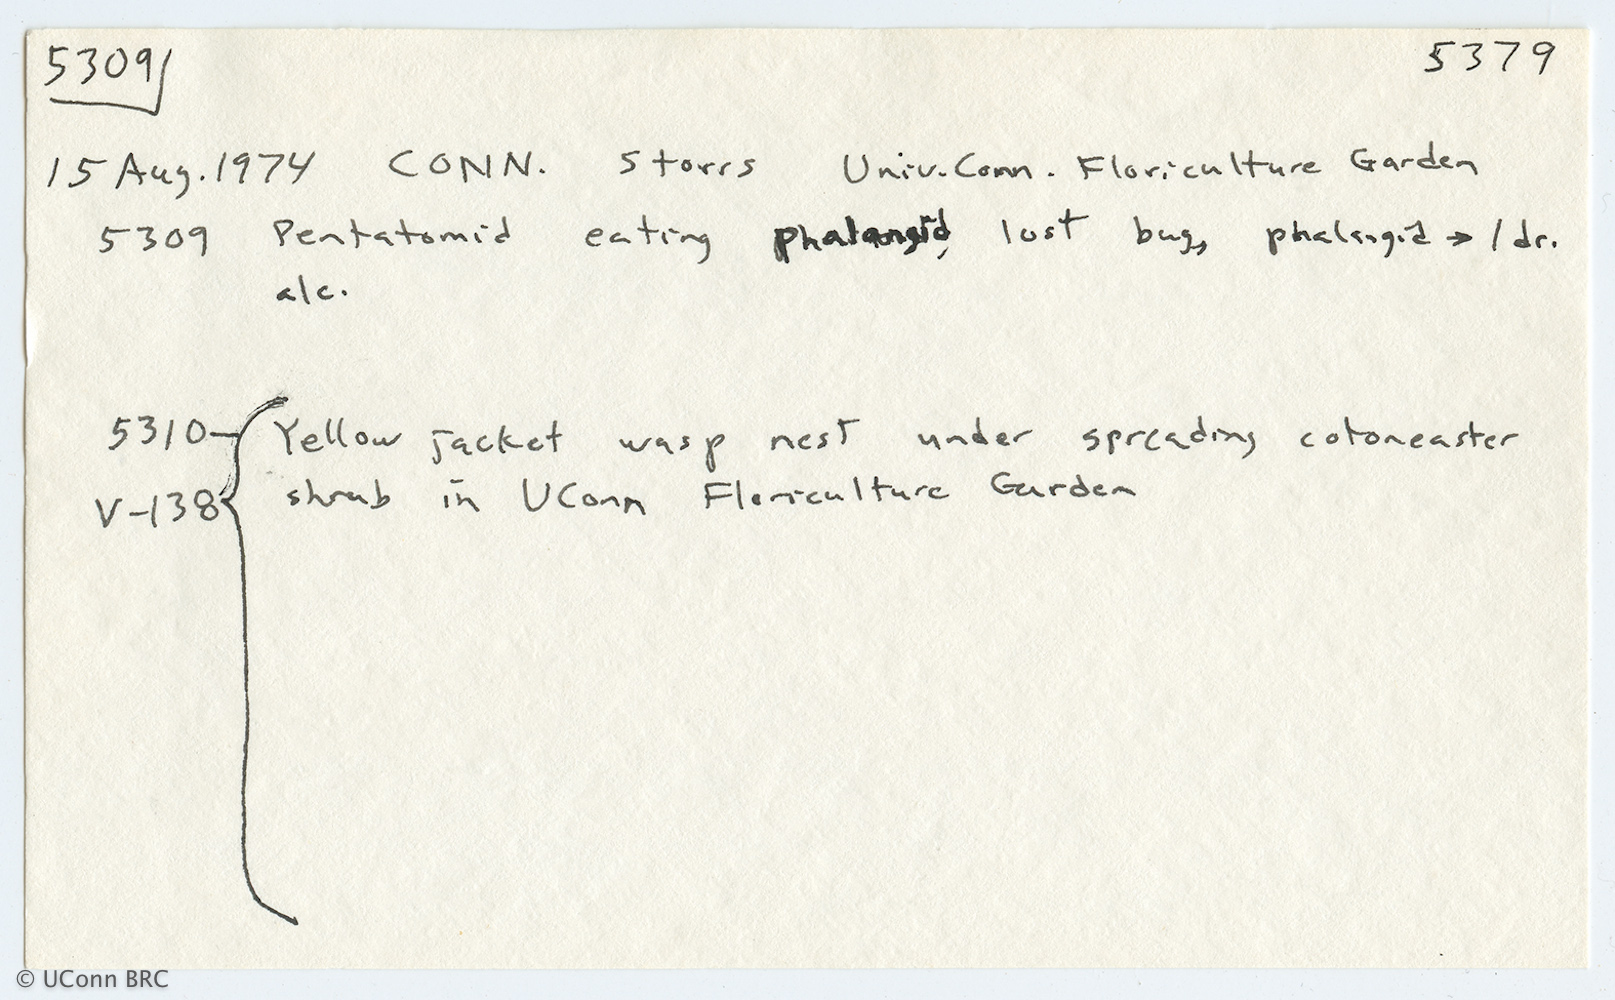 5309 5379
15 Aug. 1974 CONN. Storrs Univ. Conn. Floriculture Garden
5309 Pentatomid eating phalangid, lost bug, phalangid → 1 dr.
alc.
5310 Yellow jacket wasp nest under spreading cotoneaster
V-138 shrub in UConn Floriculture Garden
© UConn BRC